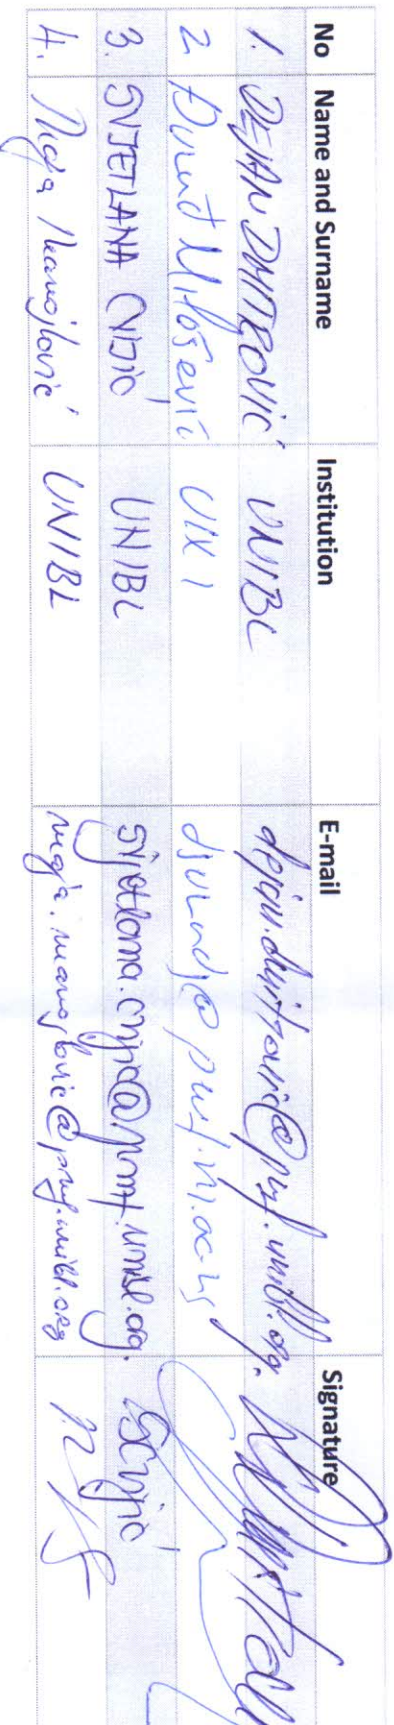 No Name and Surname Institution E-mail Signature
1. DEJAN DMITROVIĆ UNIBL dejan.dmitrovic@pmf.unibl.org.
2 Milošević
3. SVJETLANA CVIJIĆ UNIBL svjetlana.cvijic@pmf.unibl.org. SCvijić
4. Maja Manojlović UNIBL maja.manojlovic@pmf.unibl.org